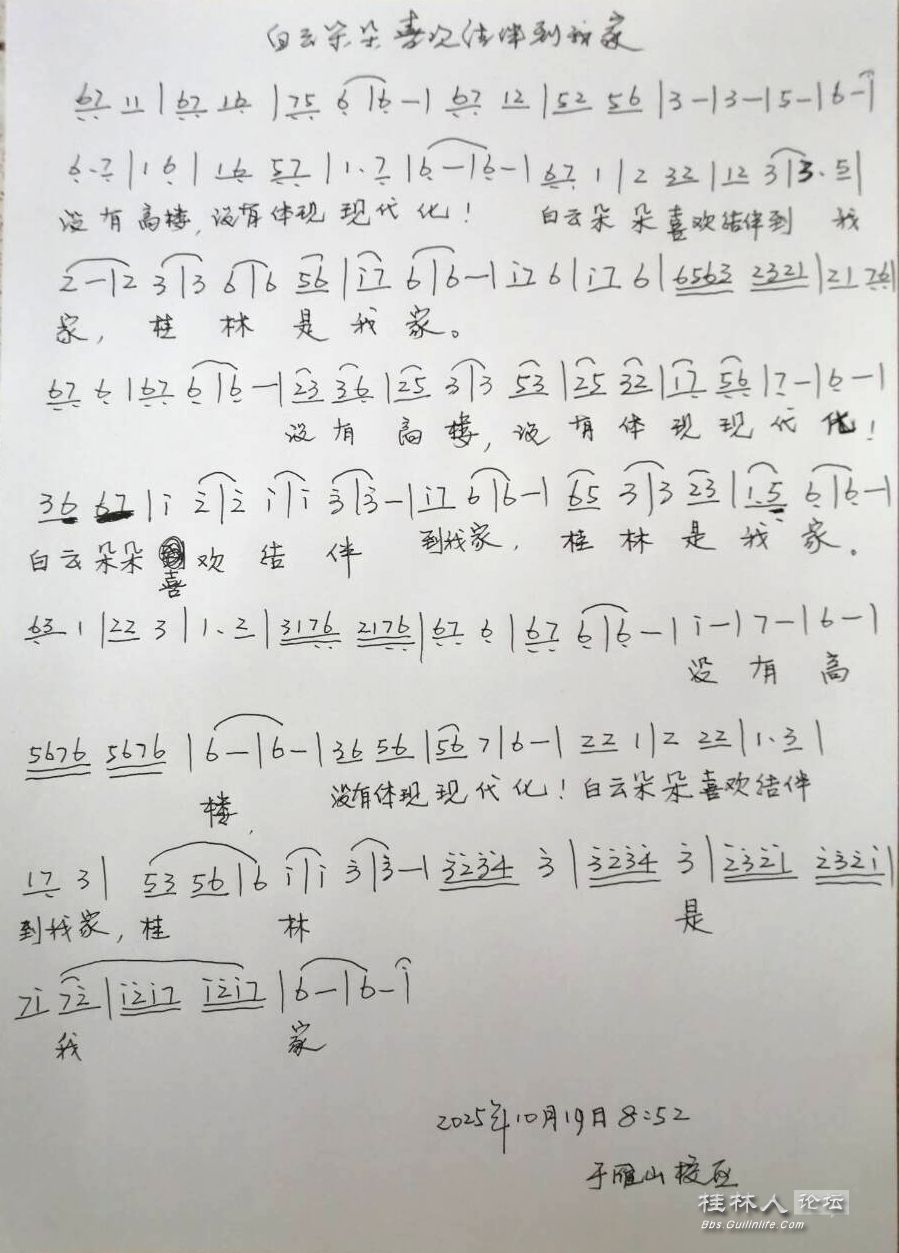 白云朵朵喜欢结伴到我家
67 11 | 67 16 | 75 6 | 6 - | 67 12 | 52 56 | 3 - | 3 - | 5 - | 6 - |
6·7 | 1 6 | 16 57 | 1·7 | 6 - | 6 - | 67 1 | 2 32 | 12 3 | 3·5 |
没有高楼,没有体现现代化! 白云朵朵喜欢结伴到我
2 - | 2 3 | 3 6 | 6 56 | i7 6 | 6 - | i7 6 | i7 6 | 6563 2321 | 21 76 |
家,桂林是我家。
67 6 | 67 6 | 6 - | 23 36 | 25 3 | 3 53 | 25 32 | i7 56 | 7 - | 6 - |
没有高楼,没有体现现代化!
36 67 | i 2̇ | 2̇ i | i 3̇ | 3̇ - | i7 6 | 6 - | 65 3 | 3 23 | 1·5 6 | 6 - |
白云朵朵喜欢结伴到我家,桂林是我家。
63 1 | 22 3 | 1·2 | 3176 2176 | 67 6 | 67 6 | 6 - | i - | 7 - | 6 - |
没有高
5676 5676 | 6 - | 6 - | 36 56 | 56 7 | 6 - | 22 1 | 2 22 | 1·3 |
楼,没有体现现代化!白云朵朵喜欢结伴
17 3 | 53 56 | 6 i | i 3̇ | 3̇ - | 3̇2̇3̇4̇ 3̇ | 3̇2̇3̇4̇ 3̇ | 2̇3̇2̇i 2̇3̇2̇i |
到我家,桂林是
7i 72̇ | i2̇i7 i2̇i7 | 6 - | 6 - |
我家
2025年10月19日 8:52
于雁山校区
桂林人论坛
Bbs.Guilinlife.Com